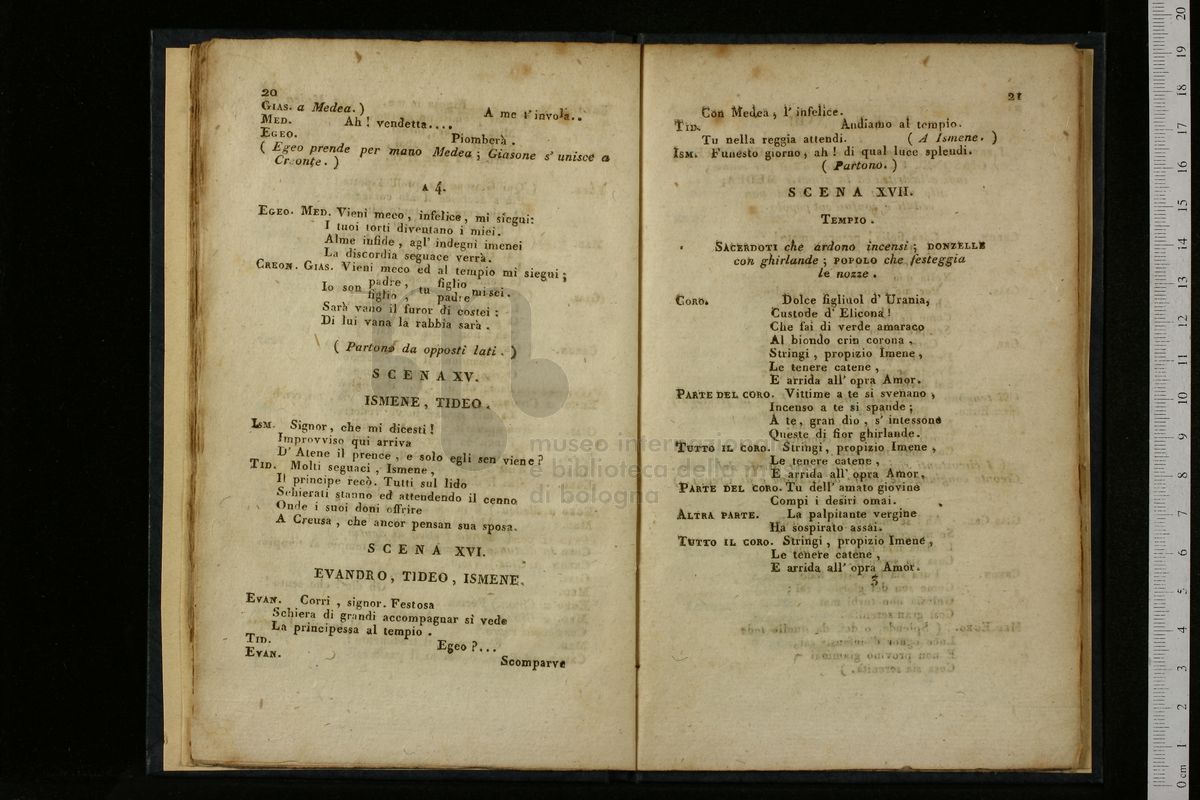 20
GIAS. a Medea. )
A me t'invola..
MED. Ah ! vendetta....
EGEO. Piomberà .
( Egeo prende per mano Medea ; Giasone s' unisce a
Creonte. )
A 4.
EGEO. MED. Vieni meco , infelice, mi siegui:
I tuoi torti diventano i miei.
Alme infide , agl' indegni imenei
La discordia seguace verrà.
CREON. GIAS. Vieni meco ed al tempio mi siegui ;
Io son padre , figlio , tu figlio padre mi sei.
Sarà vano il furor di costei :
Di lui vana la rabbia sarà .
( Partono da opposti lati . )
SCENA XV.
ISMENE , TIDEO .
ISM. Signor, che mi dicesti !
Improvviso qui arriva
D' Atene il prence , e solo egli sen viene ?
TID. Molti seguaci , Ismene ,
Il principe recò. Tutti sul lido
Schierati stanno ed attendendo il cenno
Onde i suoi doni offrire
A Creusa , che ancor pensan sua sposa.
SCENA XVI.
EVANDRO , TIDEO , ISMENE.
EVAN. Corri , signor. Festosa
Schiera di grandi accompagnar si vede
La principessa al tempio .
TID. Egeo ?...
EVAN. Scomparve
21
Con Medea , l' infelice.
TID. Andiamo al tempio.
Tu nella reggia attendi. ( A Ismene. )
ISM. Funesto giorno, ah ! di qual luce splendi.
( Partono. )
SCENA XVII.
TEMPIO .
SACERDOTI che ardono incensi ; DONZELLE
con ghirlande ; POPOLO che festeggia
le nozze .
CORO. Dolce figliuol d' Urania,
Custode d' Elicona !
Che fai di verde amaraco
Al biondo crin corona ,
Stringi , propizio Imene ,
Le tenere catene ,
E arrida all' opra Amor.
PARTE DEL CORO. Vittime a te si svenano ,
Incenso a te si spande ;
A te, gran dio , s' intessono
Queste di fior ghirlande.
TUTTO IL CORO. Stringi, propizio Imene ,
Le tenere catene ,
E arrida all' opra Amor.
PARTE DEL CORO. Tu dell' amato giovine
Compi i desiri omai.
ALTRA PARTE. La palpitante vergine
Ha sospirato assai.
TUTTO IL CORO. Stringi , propizio Imene ,
Le tenere catene ,
E arrida all' opra Amor.
museo internazionale
e biblioteca della
di bologna
0 cm 1 2 3 4 5 6 7 8 9 10 11 12 13 14 15 16 17 18 19 20